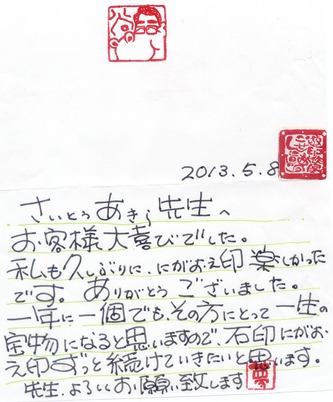 2013.5.8
さいとうあきら先生へ
お客様大喜びでした。
私も久しぶりに、にがおえ印楽しかった
です。ありがとうございました。
一年に一個でも、その方にとって一生の
宝物になると思いますので、石印にがお
え印ずっと続けていきたいと思います。
先生、よろしくお願い致します 夢